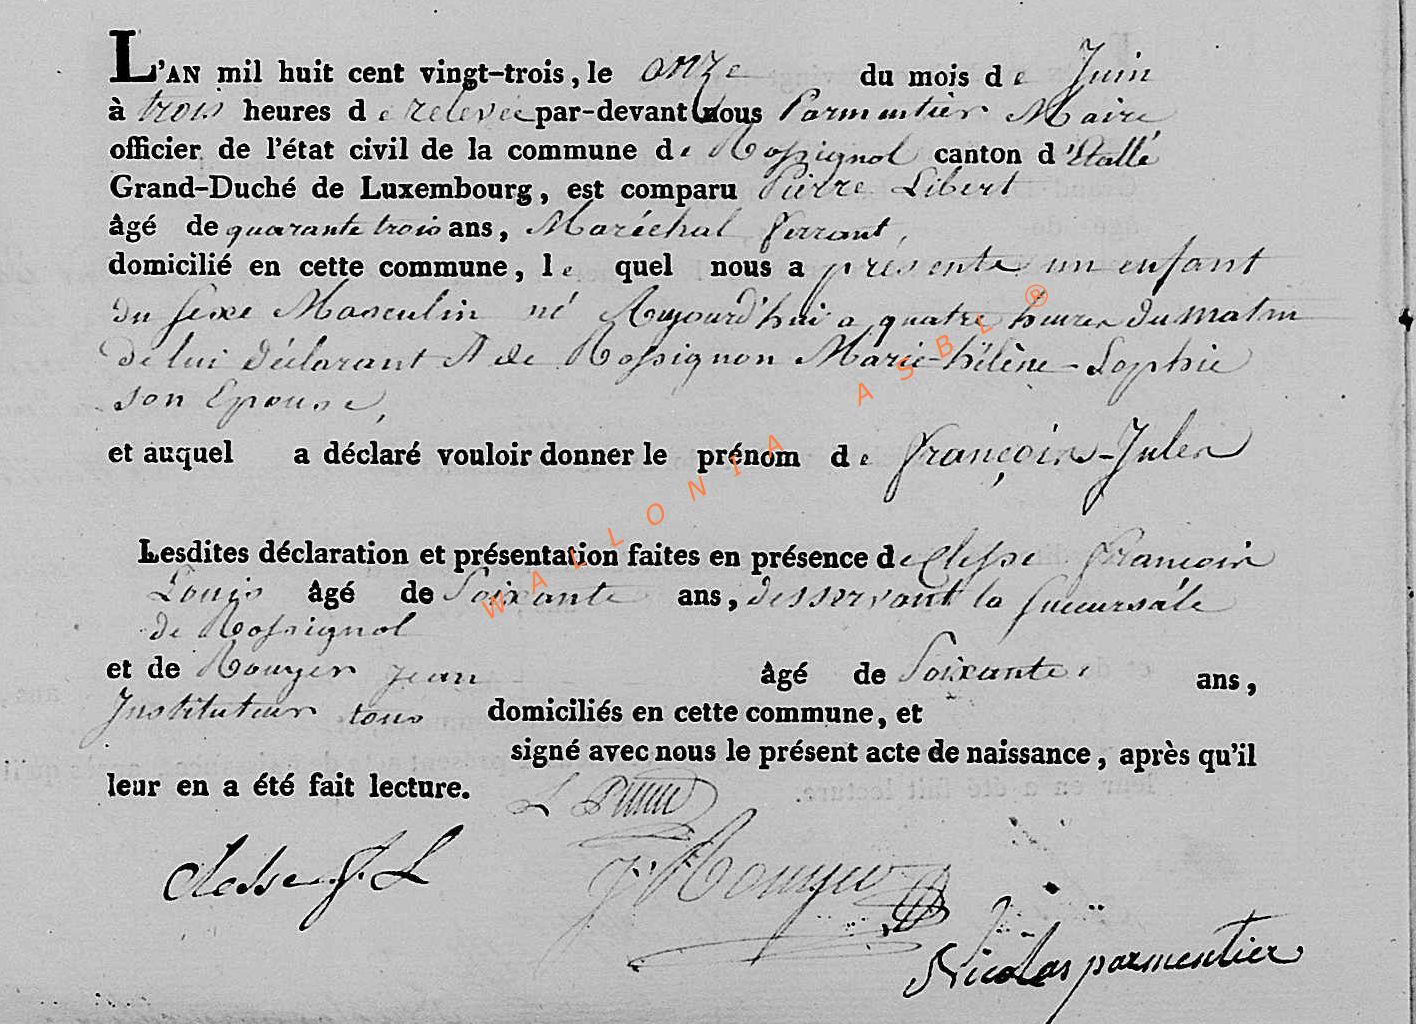 L'AN mil huit cent vingt-trois, le onze du mois de Juin
à trois heures de relevée par-devant nous Parmentier Maire
officier de l'état civil de la commune de Rossignol canton d'Etalle
Grand-Duché de Luxembourg, est comparu Pierre Libert
âgé de quarante trois ans, Maréchal ferrant,
domicilié en cette commune, le quel nous a présenté un enfant
du sexe Masculin né Aujourd'hui a quatre heures du matin
de lui Déclarant & de Rossignon Marie-hélène-Sophie
son Epouse,
et auquel a déclaré vouloir donner le prénom de françois-Jules
Lesdites déclaration et présentation faites en présence de Clesse françois
Louis âgé de Soixante ans, desservant la succursale
de Rossignol
et de Rouyer jean âgé de Soixante ans,
Instituteur tous domiciliés en cette commune, et
signé avec nous le présent acte de naissance, après qu'il
leur en a été fait lecture.
Clesse f. L
J. Rouyer
Nicolas parmentier
WALLONIA ASBL ®